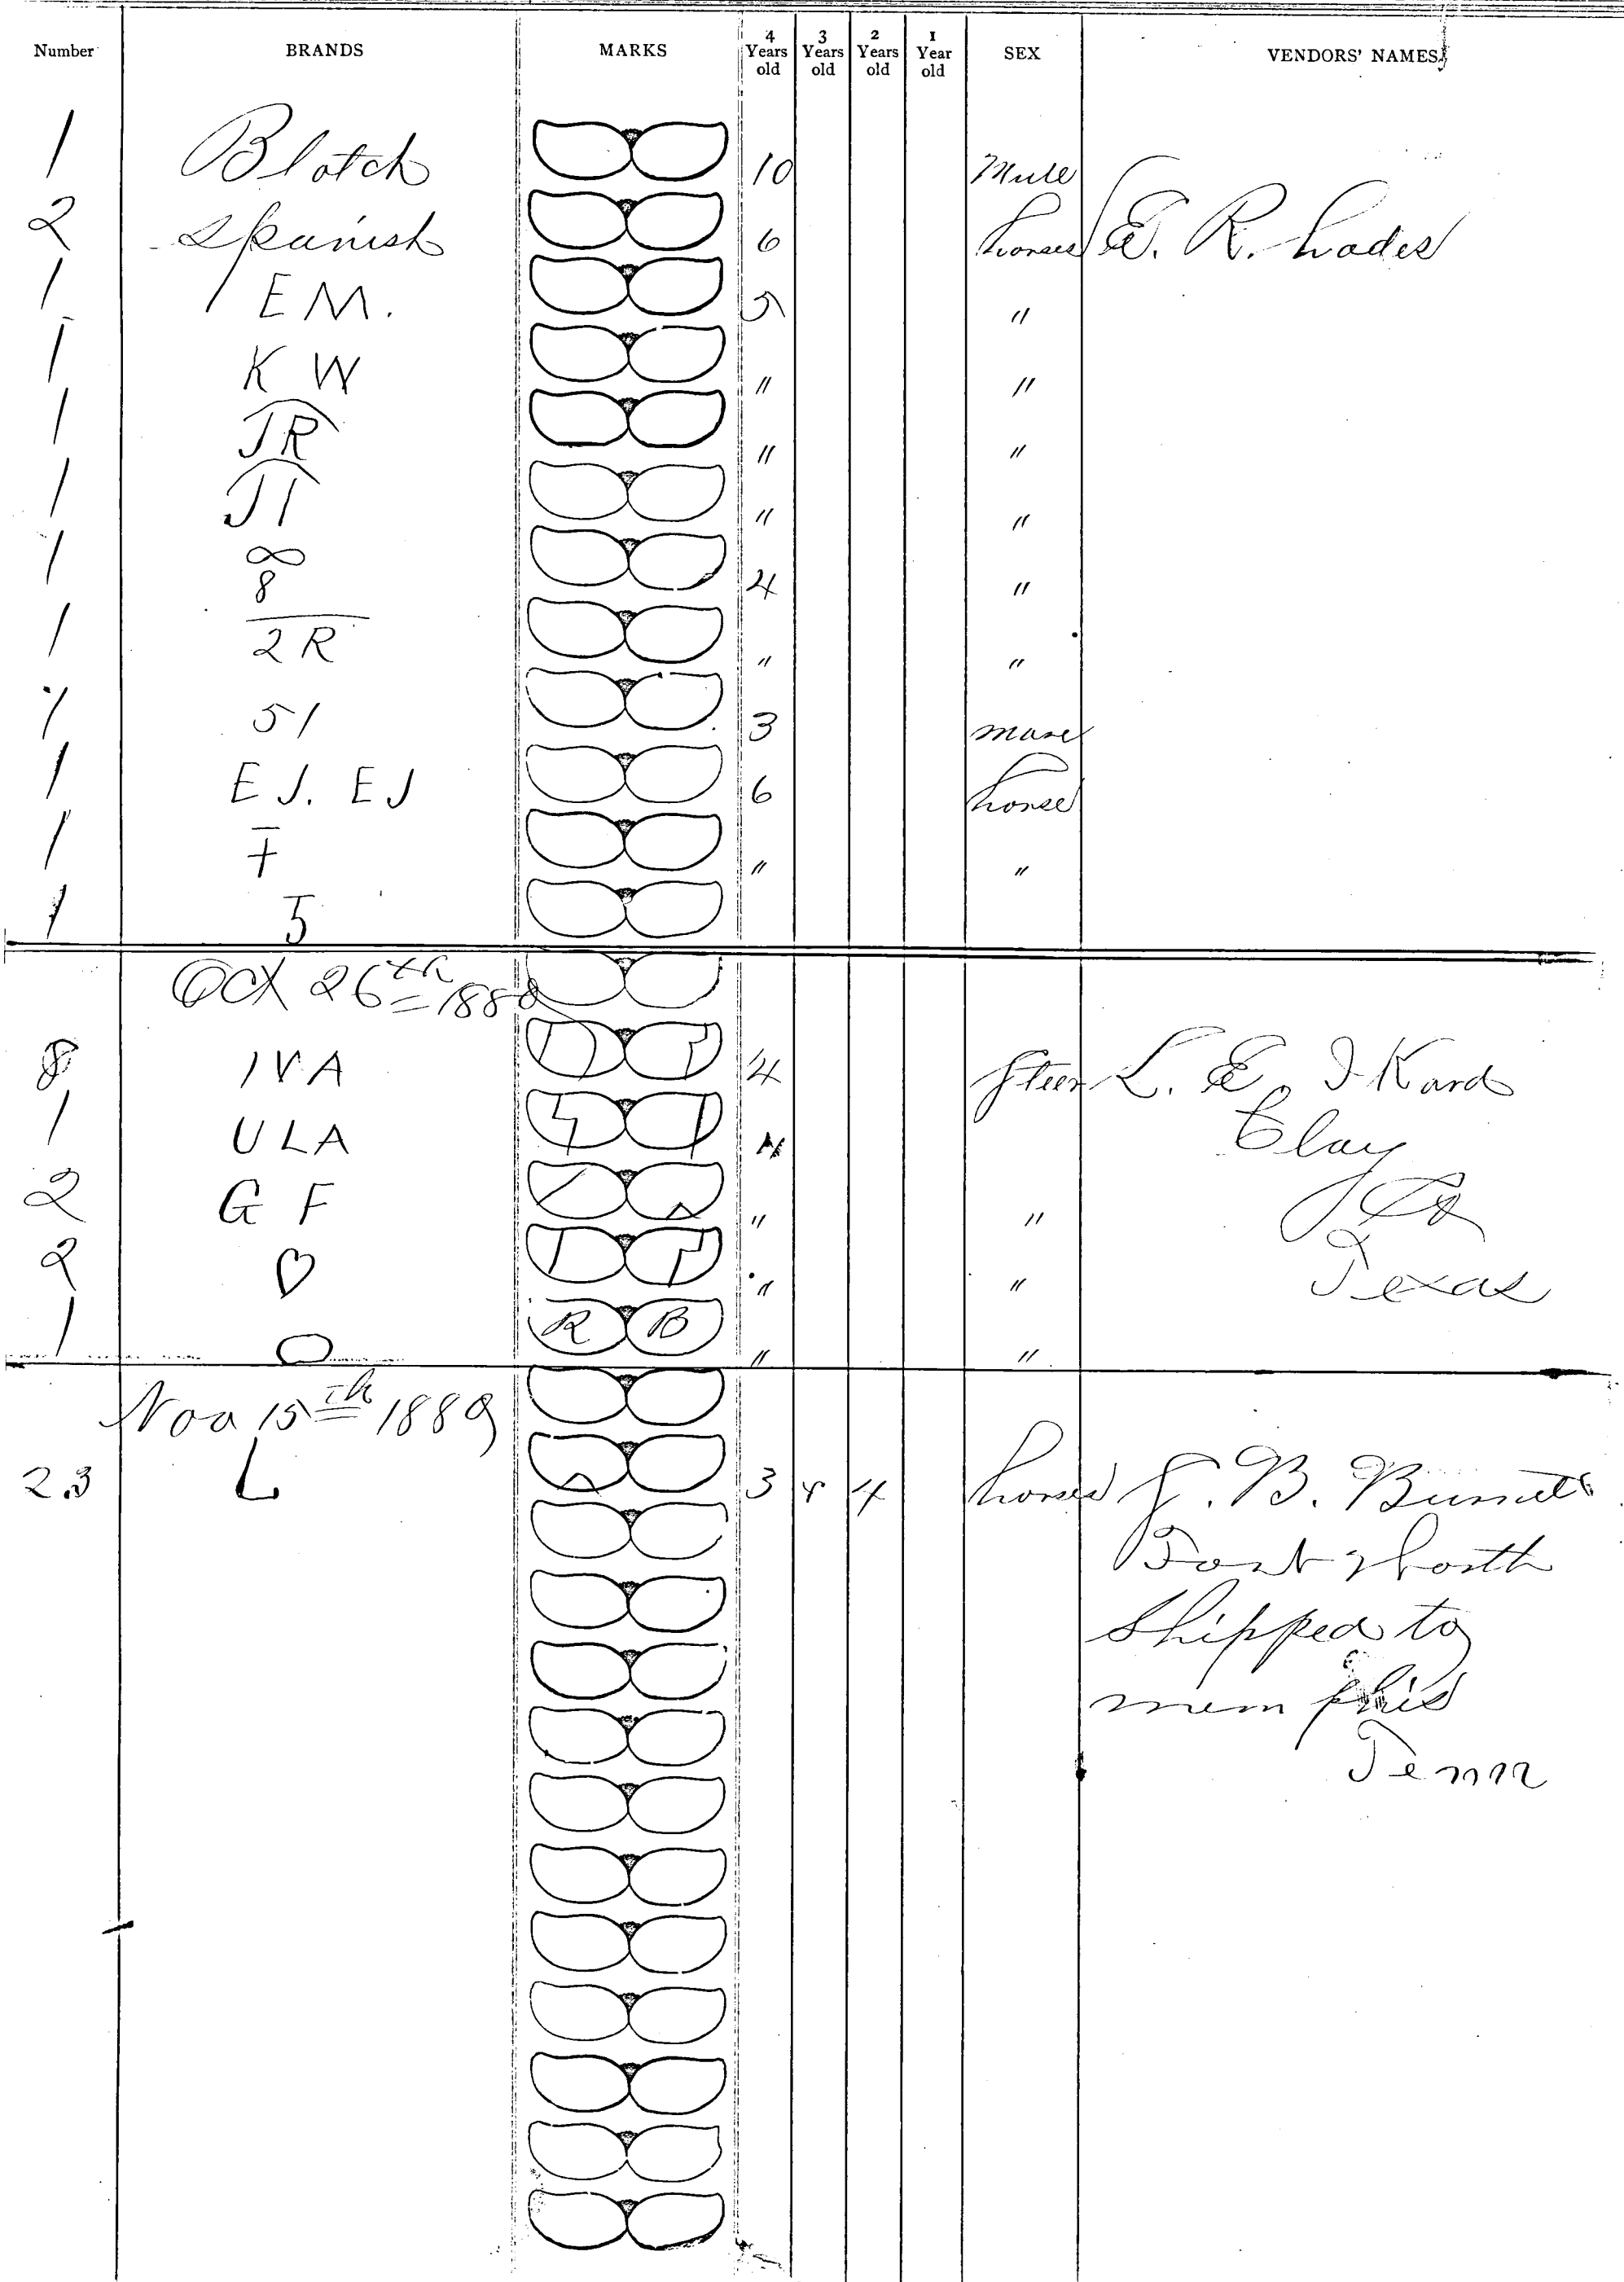 Number BRANDS MARKS 4 Years old 3 Years old 2 Years old 1 Year old SEX VENDORS' NAMES
1 Blotch 10 Mule
2 Spanish 6 horses E. R. hades
1 EM. 5 "
1 K W " "
1 JR " "
1 J1 " "
1 ∞ 8 4 "
1 2 R " "
1 51 3 mare
1 EJ. EJ 6 horse
1 " "
1 5
Oct 26th 1889
8 4 Steer L. E. IKard
1 ULA Clay
2 G F " " Co
2 ♡ " " Texas
1 R B " "
Nov 15th 1889
23 L 3 & 4 horses B. Burnett
Fort Worth
Shipped to
mem phis
Tenn